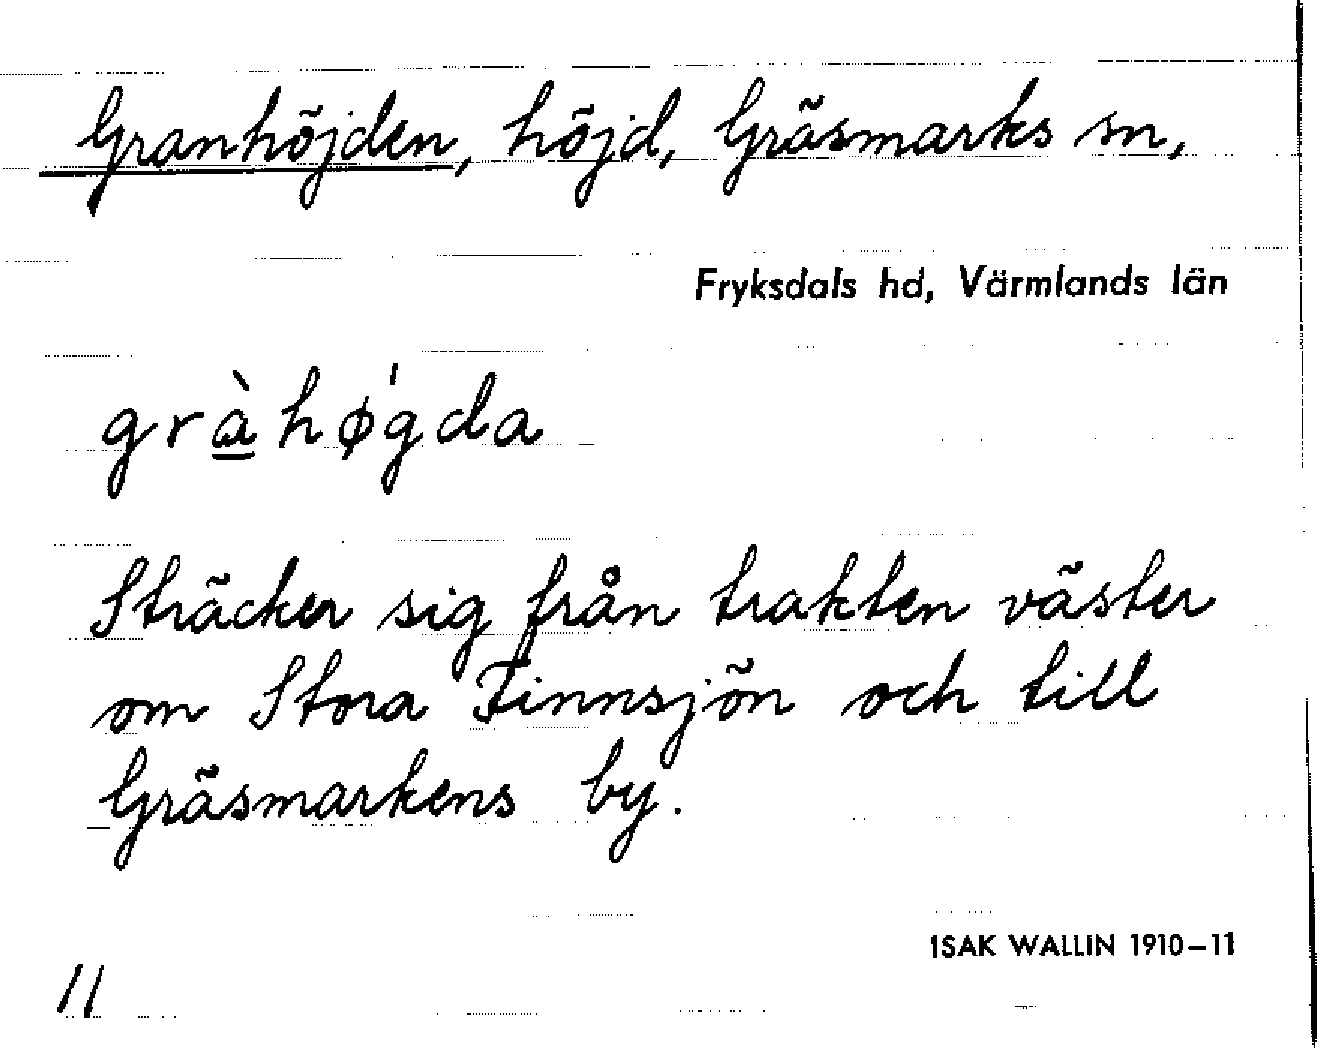 Granhöjden, höjd, Gräsmarks sn,
Fryksdals hd, Värmlands län
gràhǿgda
Sträcker sig från trakten väster
om Stora Finnsjön och till
Gräsmarkens by.
ISAK WALLIN 1910–11
11